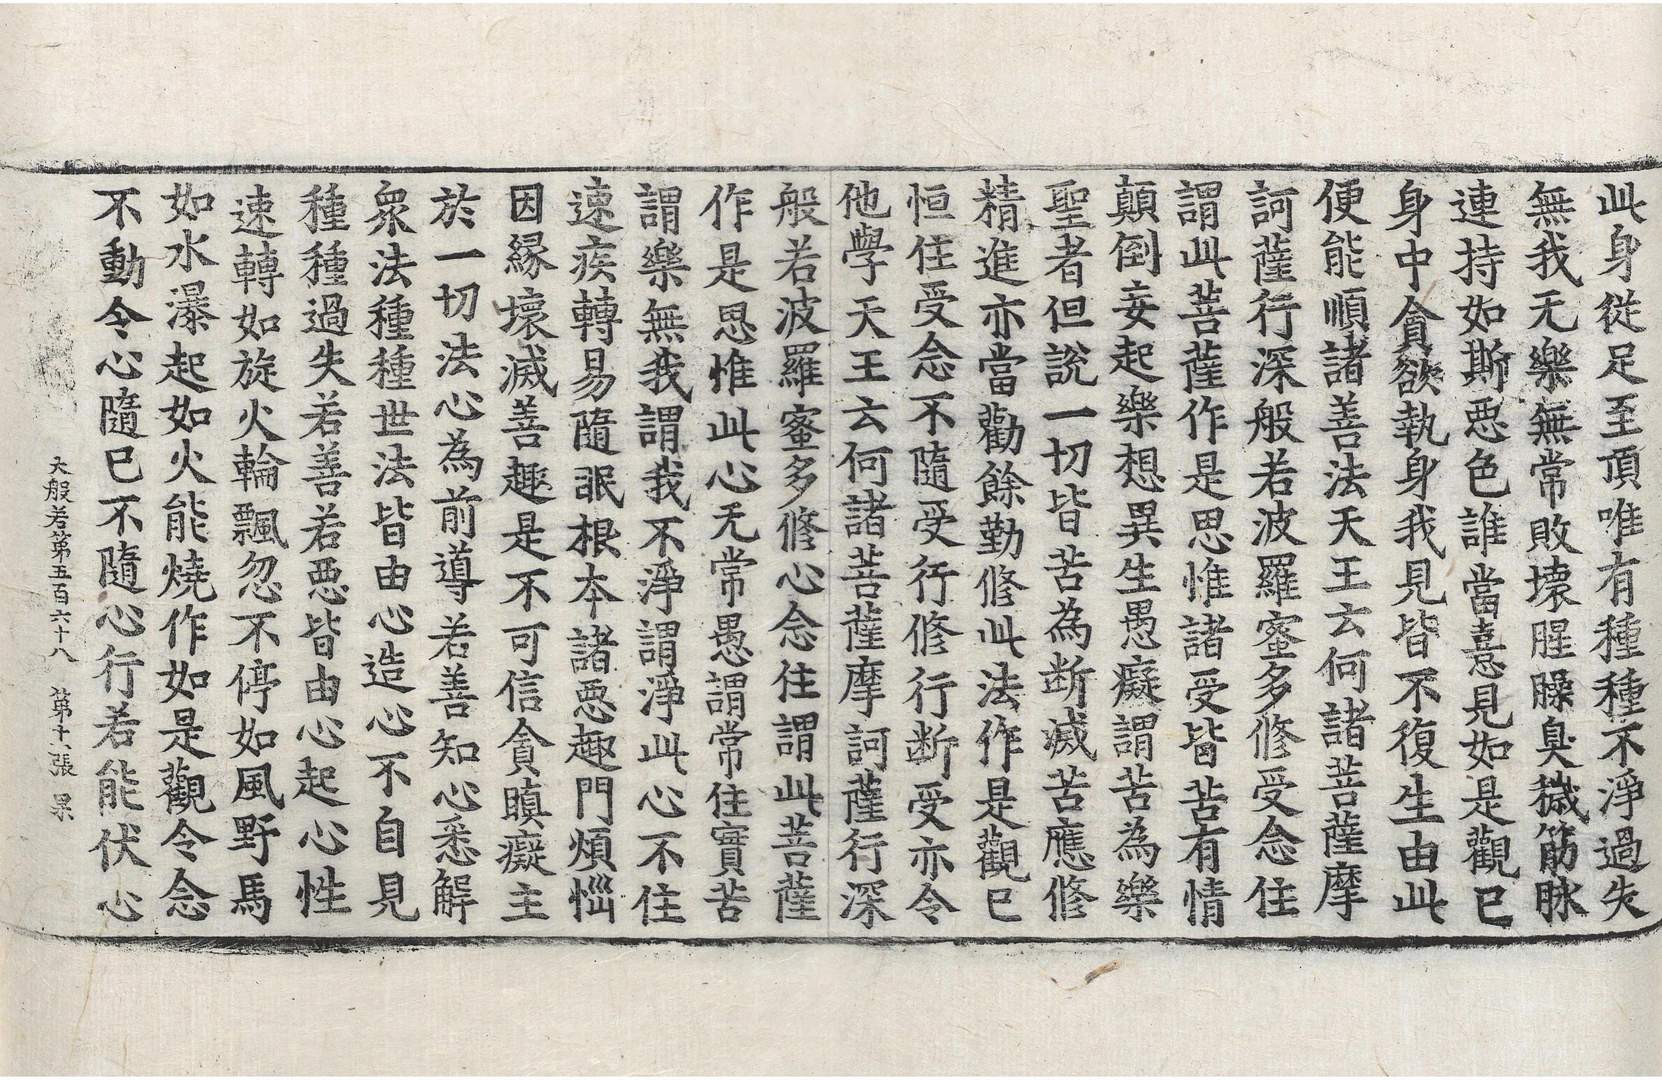 此身從足至頂唯有種種不淨過失
無我无樂無常敗壞腥臊臭穢筋脉
連持如斯惡色誰當憙見如是觀已
身中貪欲執身我見皆不復生由此
便能順諸善法天王云何諸菩薩摩
訶薩行深般若波羅蜜多修受念住
謂此菩薩作是思惟諸受皆苦有情
顛倒妄起樂想異生愚癡謂苦為樂
聖者但說一切皆苦為断滅苦應修
精進亦當勸餘勤修此法作是觀已
恒住受念不隨受行修行断受亦令
他學天王云何諸菩薩摩訶薩行深
般若波羅蜜多修心念住謂此菩薩
作是思惟此心无常愚謂常住實苦
謂樂無我謂我不淨謂淨此心不住
速疾轉易隨眠根本諸惡趣門煩惱
因緣壞滅善趣是不可信貪瞋癡主
於一切法心為前導若善知心悉解
衆法種種世法皆由心造心不自見
種種過失若善若惡皆由心起心性
速轉如旋火輪飄忽不停如風野馬
如水瀑起如火能燒作如是觀令念
不動令心隨己不隨心行若能伏心
大般若第五百六十八 第十八張 杲